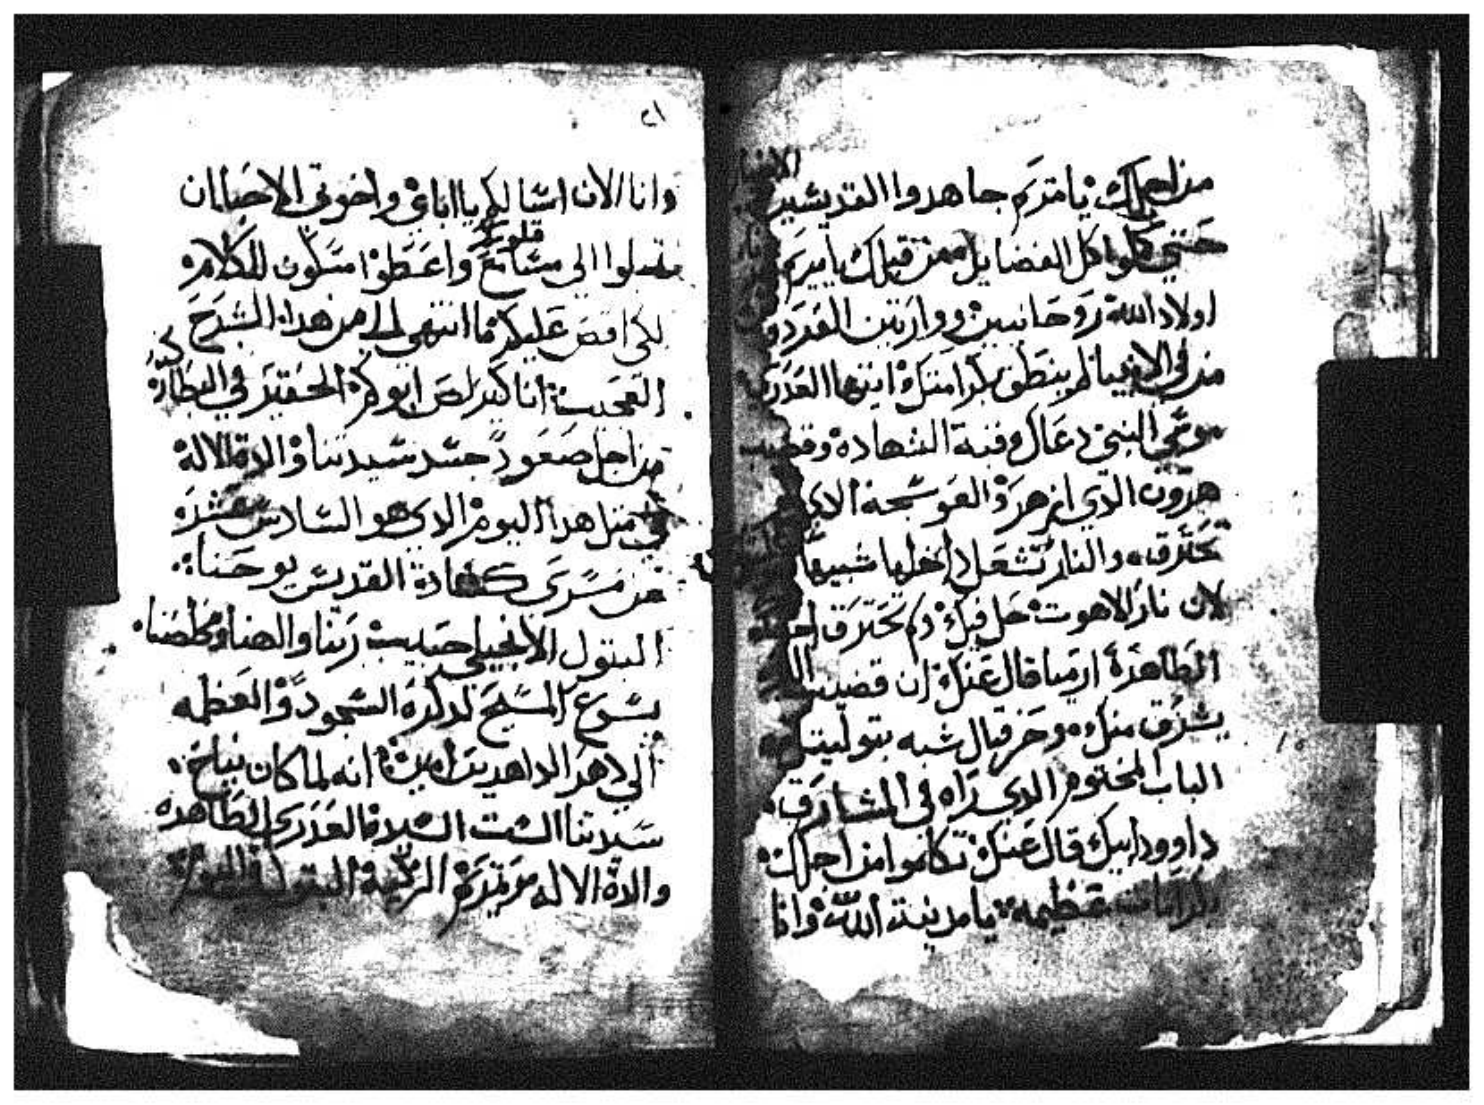 من اجلك يا مريم جاهدوا القديسين
حتي كملوا كل الفضايل فمن قبلك يا مريم
اولاد الله روحانيين ووارتين الفردو
من في الانبيا لم ينطق بكرامتك ايتها العدرى
موسى النبي دعاك قبة الشهادة وقضيب
هرون الدي ازهر والعوسجة
تحترق والنار تشعل داخلها شبيها
لان نار الاهوت حل فيك ولم تحترق
الطاهرة ارميا قال عنك ان قضيب
يشرق منك وحزقيال شبه بتوليتك
الباب المختوم الدي راه في المشارق
داوود ابيك قال عنك تكلموا من اجلك
بكرامات عظيمه يا مدينة الله وانا
٢١
وانا الان اسالكم يا اباي واخوتي الاحبا ان
تقبلوا الي بمسامع قلوبكم واعطوا سكون للكلام
لكي اقص عليكم ما انتهى الي من هدا الشرح
العجيب انا كيرلص ابوكم الحقير في البطاركه
من اجل صعود جسد سيدتنا والدة الاله
في متل هدا اليوم الدي هو السادس عشر
من مسرى كشهادة القديس يوحنا
البتول الانجيلي حبيب ربنا والهنا ومخلصنا
يسوع المسيح لدكره السجود والعظمه
الي دهر الداهرين امين انه لما كان بنياح
سيدتنا الست السلام العدرى الطاهره
والدة الاله مرتمريم الزكية البتول